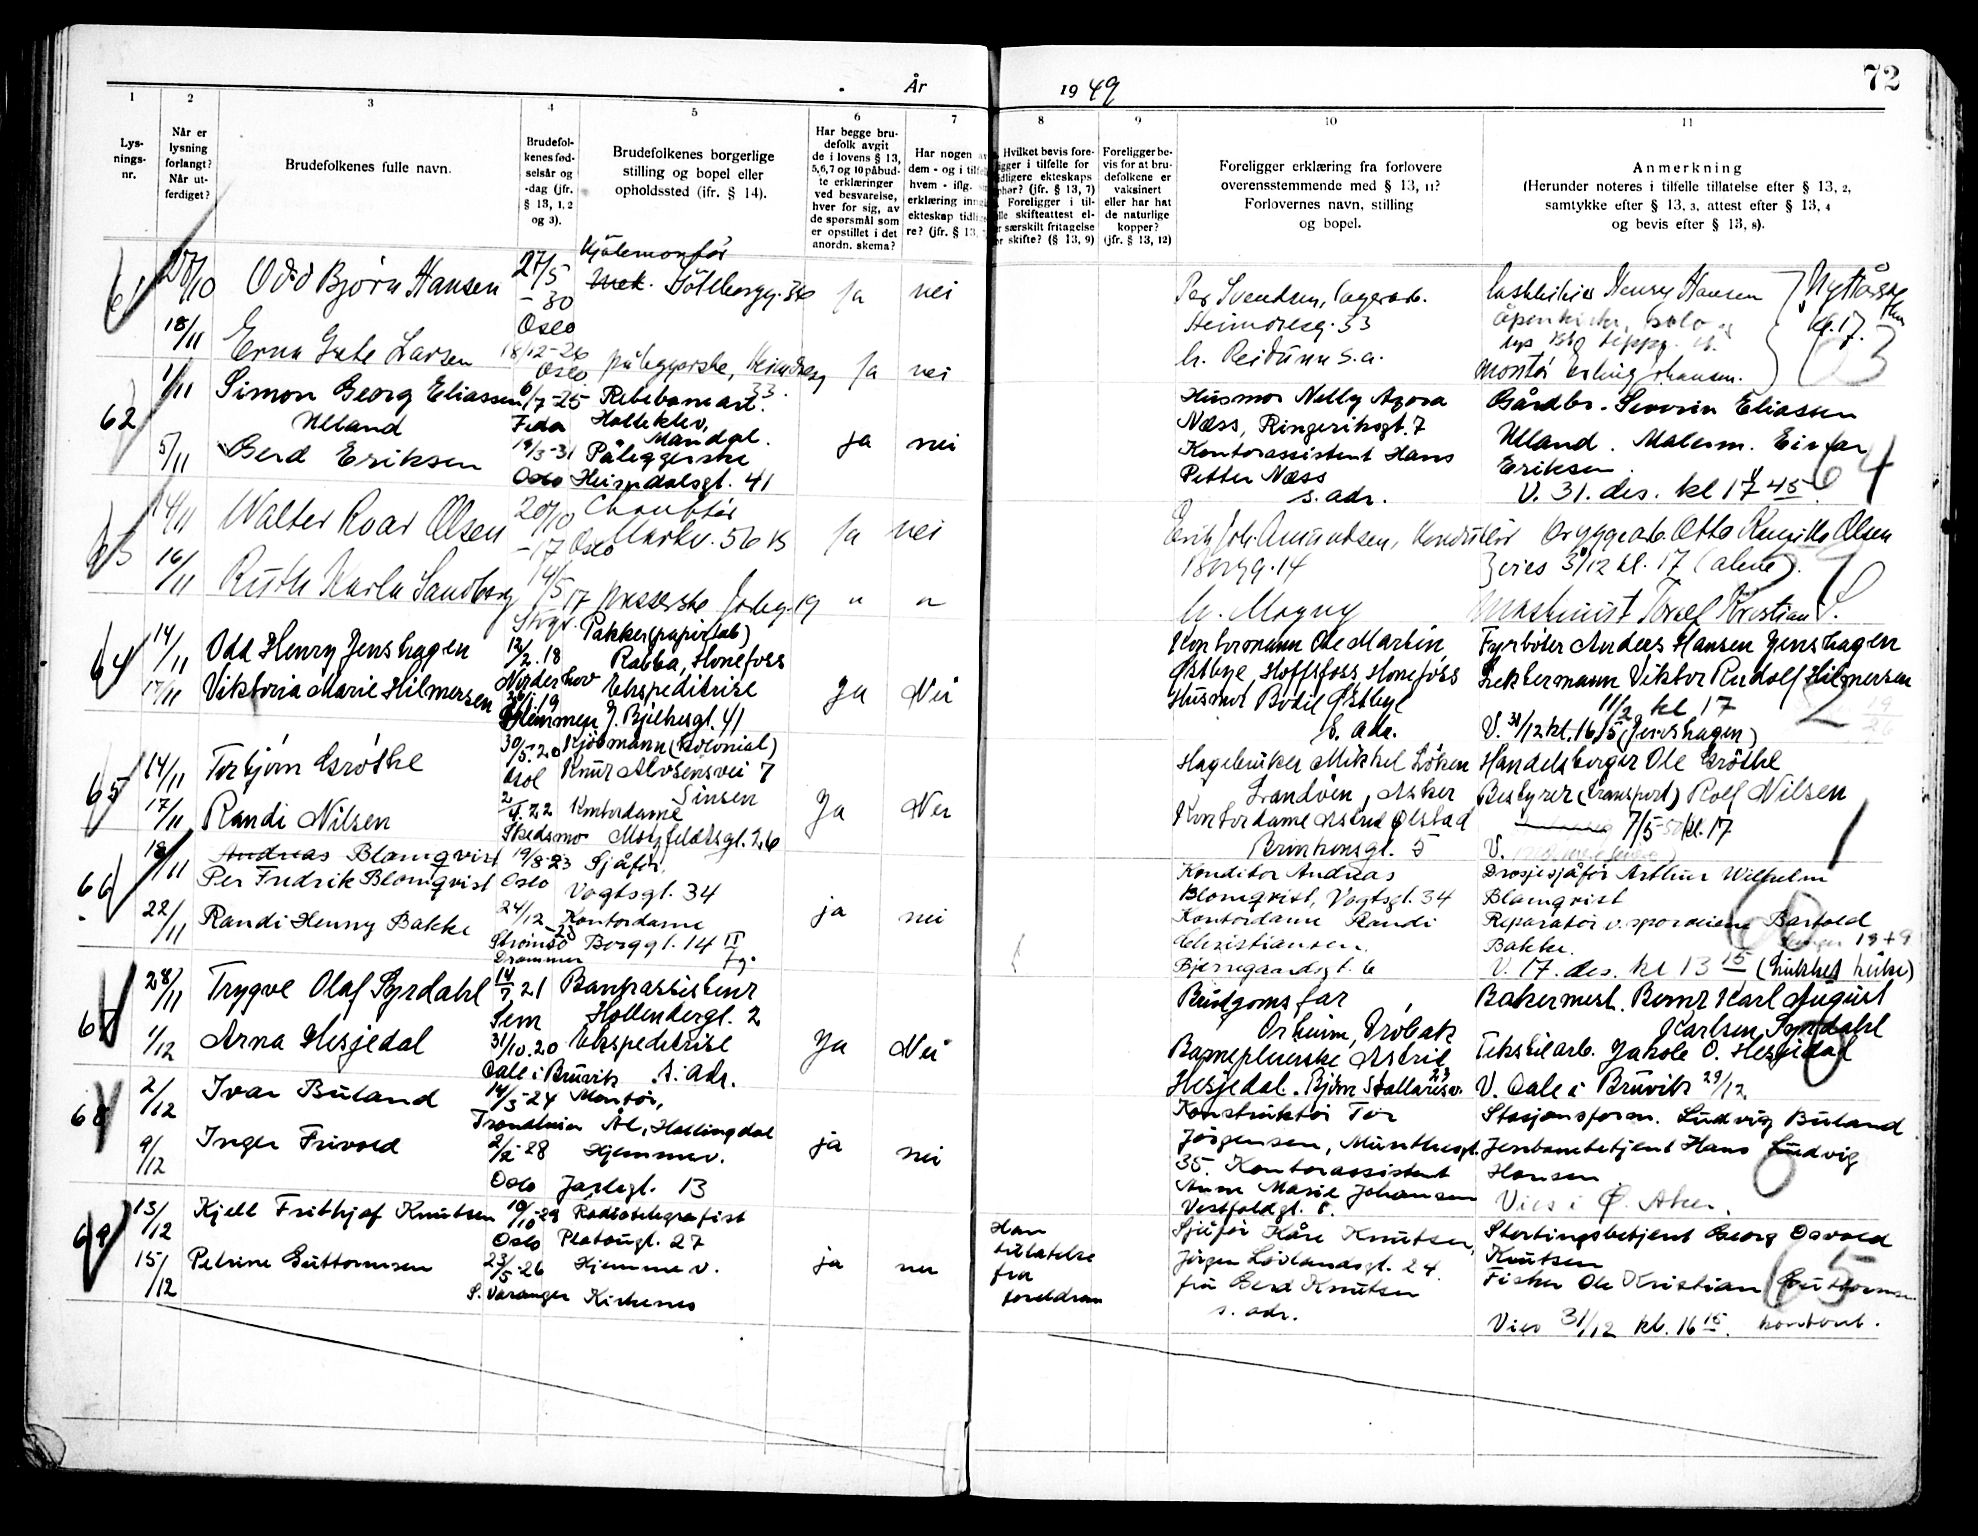 År
1949
72
1
2
3
4
5
6
7
8
9
10
11
Lys-
nings-
nr.
Når er
lysning
forlangt?
Når ut-
ferdiget?
Brudefolkenes fulle navn.
Brudefol-
kenes fød-
selsår og
-dag (jfr.
§ 13, 1, 2
og 3).
Brudefolkenes borgerlige
stilling og bopel eller
opholdssted (jfr. § 14).
Har begge bru-
defolk avgit
de i lovens § 13,
5,6,7 og 10 påbud-
te erklæringer
ved besvarelse,
hver for sig, av
de spørsmål som
er opstillet i det
anordn. skema?
Har nogen
dem - og i
hvem - iflg.
erklæring
ekteskap
re? (jfr. § 13,
Hvilket bevis fore-
ligger i tilfelle for
tidligere ekteskaps
ophør? (jfr. § 13, 7)
Foreligger i til-
felle skifteattest el-
ler særskilt fritagelse
for skifte? (§ 13, 9)
Foreligger be-
vis for at bru-
defolkene er
vaksinert
eller har hat
de naturlige
kopper?
(jfr. § 13, 12)
Foreligger erklæring fra forlovere
overensstemmende med § 13, 11?
Forlovernes navn, stilling
og bopel.
Anmerkning
(Herunder noteres i tilfelle tillatelse efter § 13, 2,
samtykke efter § 13, 3, attest efter § 13, 4
og bevis efter § 13, 8).
61
28/10
Odd Bjørn Hansen
27/5
-30
Oslo
ja
nei
Per Svendsen, lagerarb.
Heimdalsg. 33
Henry Hansen
kl. 17.
18/11
Erna Grete Larsen
18/12-26
Oslo
påleggerske, Heimdalsg
33.
ja
nei
montør Erling Johansen.
62
1/11
Simon Georg Eliassen
Ulland
6/7-25
Feda
Holleklev,
Mandal.
ja
nei
Husmor Nelly Agora
Næss, Ringeriksgt. 7
Gårdbr. Severin Eliassen
Ulland. Malerm. Einar
5/11
Gerd Eriksen
19/3-31
Oslo
Påleggerske
Heimdalsgt. 41
Kontorassistent Hans
Petter Næss
s. adr.
Eriksen.
V. 31. des. kl 17 45
64
63
14/11
Walter Roar Olsen
20/10
-17 Oslo
Chauffør
Markv. 56 B
ja
nei
Erik Joh. Amundsen, konduktør
Borgg. 14
Bryggearb. Otto Olsen
Vies 3/12 kl. 17 (alene).
16/11
Ruth Karla Sandberg
14/5 17
presserske
"
"
Maskinist Toralf Kristian S.
64
14/11
Odd Henry Jenshagen
12/2.18
Norderhov
Pakker (papirfab)
Rabba, Hønefoss
Ja
Nei
Kontormann Ole Martin
Østbye, Hoffsfoss, Hønefoss
Fyrbøter Anders Hansen Jenshagen
17/11
Viktoria Marie Hilmersen
Hemmen
Ekspeditrise
J. Bjelkesgt. 41
Husmor Bodil Østbye
S. adr.
Lektermann Viktor Rudolf Hilmersen
kl 17
V. 31/12 kl. 16 15 (Jenshagen)
65
14/11
Torbjørn Grøthe
30/5.20
Kjøbmann (kolonial)
Knut Alvsensvei 7
Sinsen
Ja
Nei
Hagebruker Mikkel Løken
Landøen, Asker
Handelsborger Ole Grøthe
17/11
Randi Nilsen
22
Skedsmo
Kontordame
Motzfeldtsgt. 26
Kontordame Astrid Ølstad
Brinkensgt. 5
Bestyrer (transport) Rolf Nilsen
7/5-50 kl. 17
V.
66
18/11
Andreas Blomqvist
Per Fredrik Blomqvist
19/8-23
Oslo
Sjåfør,
Vogtsgt. 34
ja
nei
Konditor Andreas
Blomqvist, Vogtsgt. 34
Drosjesjåfør Arthur Wilhelm
Blomqvist
22/11
Randi Henny Bakke
24/12
-23
Strømsø
Drammen
Kontordame
Borggt. 14 II
Kontordame Randi
Christiansen.
Bjerregaardsgt. 6
Reparatør v. sporveiene Bartold
Bakke.
V. 17. des. kl 13 15 (lukket kirke)
67
28/11
Trygve Olaf Syrdahl
14/7 21
Sem
Bankassistent
Hollendergt. 2
Ja
Nei
Brudgoms far
Orheim, Drøbak
Bakermest. Bernt Karl August
Karlsen Syrdahl
1/12
Arna Hesjedal
31/10.20
Dale i Bruvik
Ekspeditrise
s. adr.
Barnepleierske Astrid
Hesjedal. Bjørn Stallaresv. 23
Tekstilarb. Jakob O. Hesjedal
V. Dale i Bruvik 29/12
68
2/12
Ivar Buland
14/5-24
Trondheim
Montør,
Ål, Hallingdal
ja
nei
Konstruktør Tor
Jørgensen, Munthesgt.
35. Kontorassistent
Stasjonsform. Ludvig Buland
9/12
Inger Frivold
2/2-28
Oslo
Hjemmev.
Jarlegt. 13
Anne Marie Johansen
Vestfoldgt. 8.
Jernbanebetjent Hans Ludvig
Hansen
Vies i Ø. Aker.
69
13/12
Kjell Frithjof Knutsen
19/10-29
Oslo
Radiotelegrafist
Platougt. 27
ja
nei
Han
tillatelse
fra
foreldrene
Sjåfør Kåre Knutsen,
Jørgen Løvlandsgt. 24.
Stortingsbetjent Georg Osvald
Knutsen
15/12
Petrine Guttormsen
23/5-26
S. Varanger
Hjemmev.
Kirkenes
fru Gerd Knutsen
s. adr.
Fisker Ole Kristian Guttormsen
Vies 31/12 kl. 16 15.
65